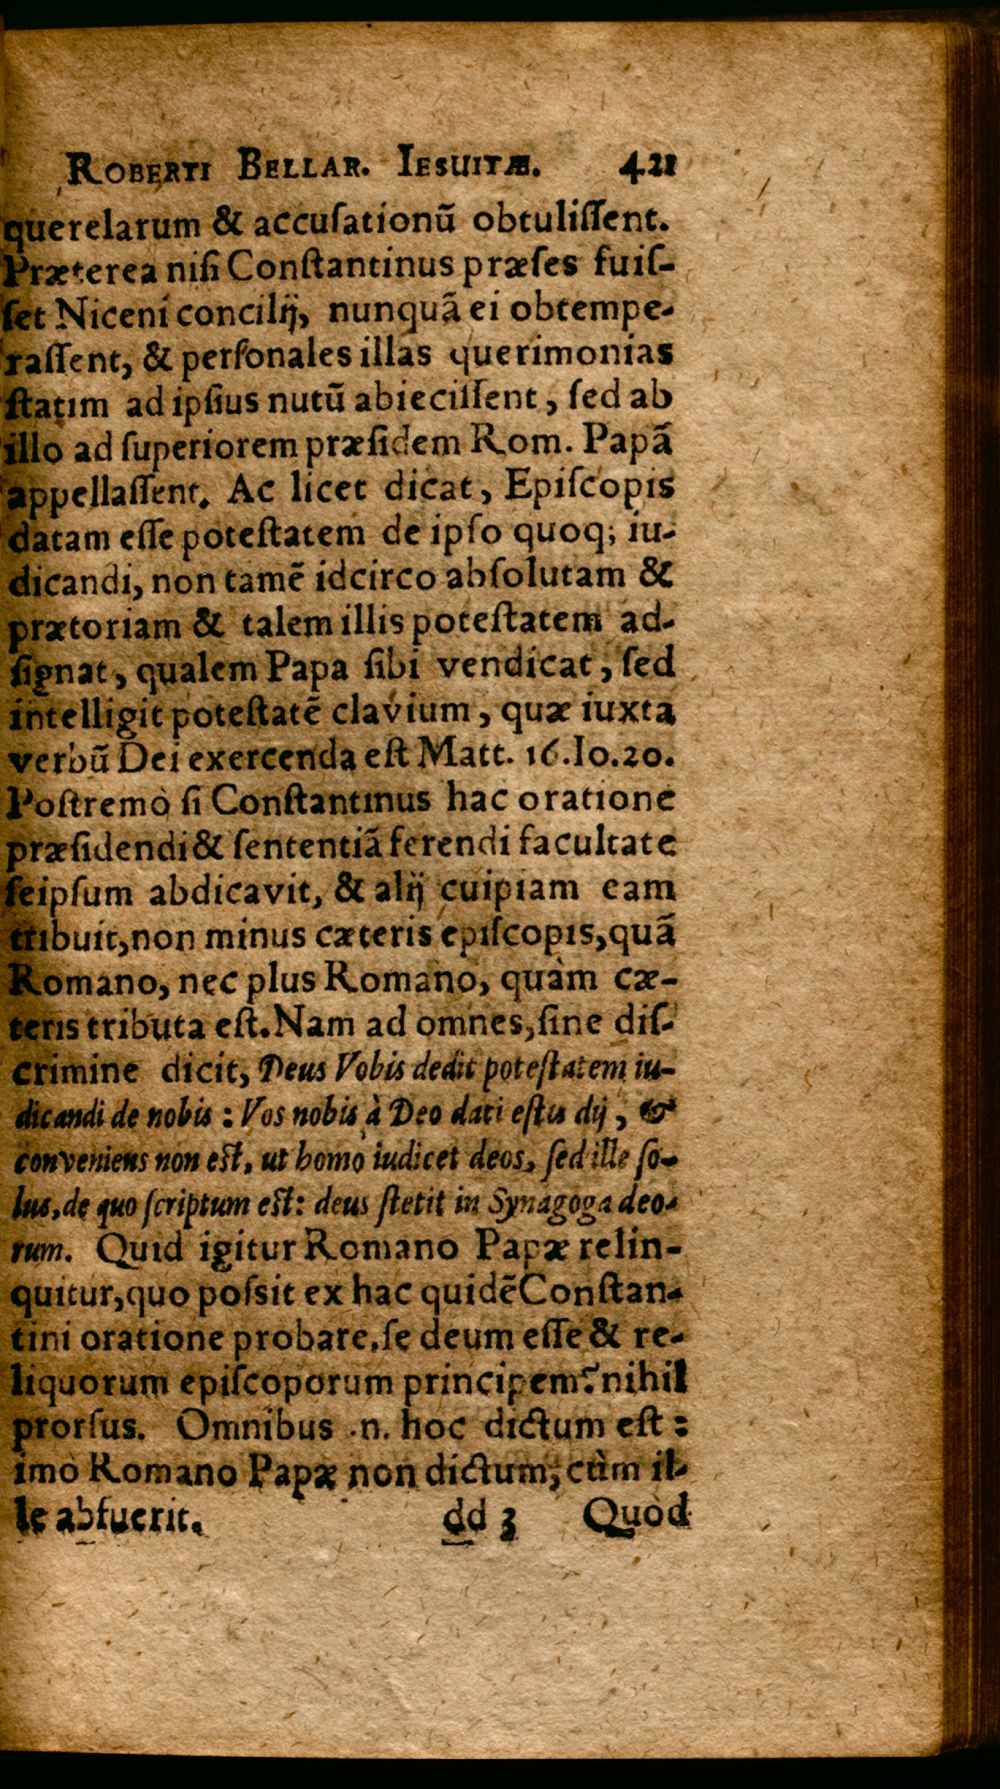 ROBERTI BELLAR. IESUITÆ. 421
querelarum & accuſationũ obtuliſſent.
Præterea niſi Conſtantinus præſes fuiſ-
ſet Niceni concilij, nunquã ei obtempe-
raſſent, & perſonales illas querimonias
ſtatim ad ipſius nutũ abieciſſent, ſed ab
illo ad ſuperiorem præſidem Rom. Papã
appellaſſent. Ac licet dicat, Epiſcopis
datam eſſe poteſtatem de ipſo quoq; iu-
dicandi, non tamẽ idcirco abſolutam &
prætoriam & talem illis poteſtatem ad-
ſignat, qualem Papa ſibi vendicat, ſed
intelligit poteſtatẽ clavium, quæ iuxta
verbũ Dei exercenda eſt Matt. 16. Io. 20.
Poſtremò ſi Conſtantinus hac oratione
præſidendi & ſententiã ferendi facultate
ſeipſum abdicavit, & alij cuipiam eam
tribuit, non minus cæteris epiſcopis, quã
Romano, nec plus Romano, quàm cæ-
teris tributa eſt. Nam ad omnes, ſine diſ-
crimine dicit, Deus Vobis dedit poteſtatem iu-
dicandi de nobis : Vos nobis à Deo dati eſtis dij, &
conveniens non eſt, ut homo iudicet deos, ſed ille ſo-
lus, de quo ſcriptum eſt: deus ſtetit in Synagoga deo-
rum. Quid igitur Romano Papæ relin-
quitur, quo poſsit ex hac quidẽ Conſtan-
tini oratione probare, ſe deum eſſe & re-
liquorum epiſcoporum principem? nihil
prorſus. Omnibus .n. hoc dictum eſt:
imò Romano Papæ non dictum, cùm il-
le abfuerit. dd 3 Quòd